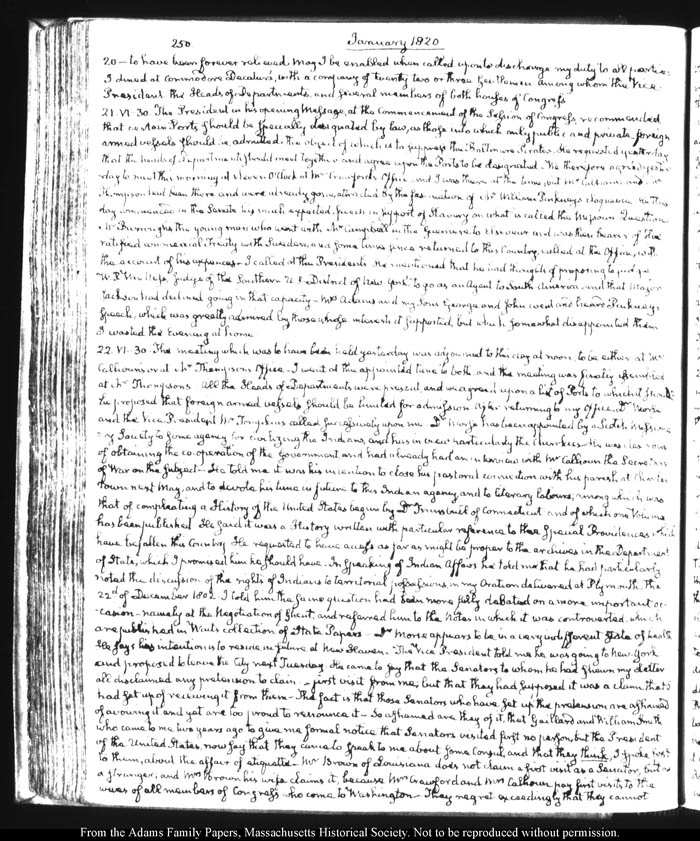 250
January 1820
20 — to have been forever relieved. May I be enabled when called upon to discharge my duty to all parties.
I dined at Commodore Decatur's, with a company of twenty two or three Gentlemen among whom the Vice
President the Heads of Departments, and several members of both houses of Congress
21. VI. 30. The President in his opening Message, at the Commencement of the Session of Congress, recommended
that certain Ports should be specially designated by law, as those into which only public and private foreign
armed vessels should be admitted. The object of which is to suppress the Baltimore Pirates. He requested yesterday
that the heads of Department should meet together and agree upon the Ports to be designated. We therefore agreed yester-
day to meet this morning at eleven O'Clock at Mr Crawford's Office and I was there at the time, but Mr Calhoun and Mr
Thompson had been there and were already gone, attracted by the fascination of Mr William Pinkney's eloquence. He this
day commenced in the Senate his much expected Speech in support of Slavery on what is called the Missouri Question
Mr Burroughs the young man who went with Mr Campbell in the Guerriere, to Elsineur and was there bearer of the
ratified commercial Treaty with Sweden, and some time since returned to this Country, called at the Office, with
the account of his expences. I called at the Presidents. He mentioned that he had thought of proposing to Judge
W. P. Van Ness, Judge of the Southern U. S. District of New York to go as an Agent to South America, and that Major
Jackson had declined going in that capacity — Mrs Adams and my Sons George and John went and heard Pinkney's
Speech, which was greatly admired by those whose interests it supported, but which somewhat disappointed them
I wasted the Evening at home
22. VI. 30. The meeting which was to have been held yesterday was adjourned to this day at noon, to be either at Mr
Calhoun's or at Mr Thompson's Office. I went at the appointed time to both and the meeting was finally effected
at Mr Thompson's. All the Heads of Departments were present, and we agreed upon a list of Ports to which it should
be proposed that foreign armed vessels should be limited for admission. After returning to my Office, Dr Morse
and the Vice President Mr Tompkins called successively upon me. Dr Morse has been appointed by a Scotch Mission-
ary Society to some agency for civilizing the Indians, and has in view particularly the Cherokees. He was desirous
of obtaining the co-operation of the Government and had already had an interview with Mr Calhoun the Secretary
of War on the subject — He told me it was his intention to close his pastoral connection with his parish at Charles-
town next May, and to devote his time in future to this Indian agency and to literary labours, among which was
that of compleating a History of the United States begun by Dr Trumbull of Connecticut and of which one Volume
has been published. He said it was a History written with particular reference to the Special Providences which
have befallen this Country. He requested to have access as far as might be proper to the archives in the Department
of State, which I promised him he should have. In speaking of Indian Affairs he told me that he had particularly
noted the discussion of the rights of Indians to territorial possessions in my Oration delivered at Plymouth, the
22d of December 1802. I told him the same question had been more fully debated on a more important oc-
casion — namely at the Negotiation of Ghent, and referred him to the Notes in which it was controverted, which
are published in Wait's collection of State Papers — Dr Morse appears to be in a very indifferent state of health
He says his intention is to reside in future at New Haven. The Vice President told me he was going to New York
and proposed to leave the City next Tuesday. He came to say that the Senators to whom he had shewn my letter
all disclaimed any pretension to claim a first visit from me; but that they had supposed it was a claim that I
had set up of receiving it from them — The fact is that those Senators who have set up the pretension are ashamed
of avowing it and yet are too proud to renounce it — So ashamed are they of it, that Gaillard and William Smith
who came to me two years ago to give me formal notice that Senators visited first no person but the President
of the United States, now say that they came to speak to me about some Consul, and that they think, I spoke first
to them, about the affair of etiquette. Mr Brown of Louisiana does not claim a first visit as a Senator, but as
a stranger; and Mrs Brown his wife claims it, because Mrs Crawford and Mrs Calhoun pay first visits to the
wives of all members of Congress who come to Washington — They regret exceedingly that they cannot
From the Adams Family Papers, Massachusetts Historical Society. Not to be reproduced without permission.